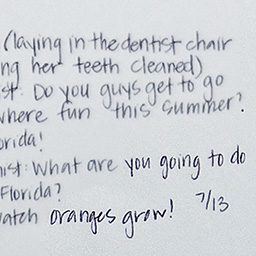 (laying in the dentist chair
ng her teeth cleaned)
st: Do you guys get to go
where fun this summer?
orida!
ist: What are you going to do
Florida?
atch oranges grow! 7/13